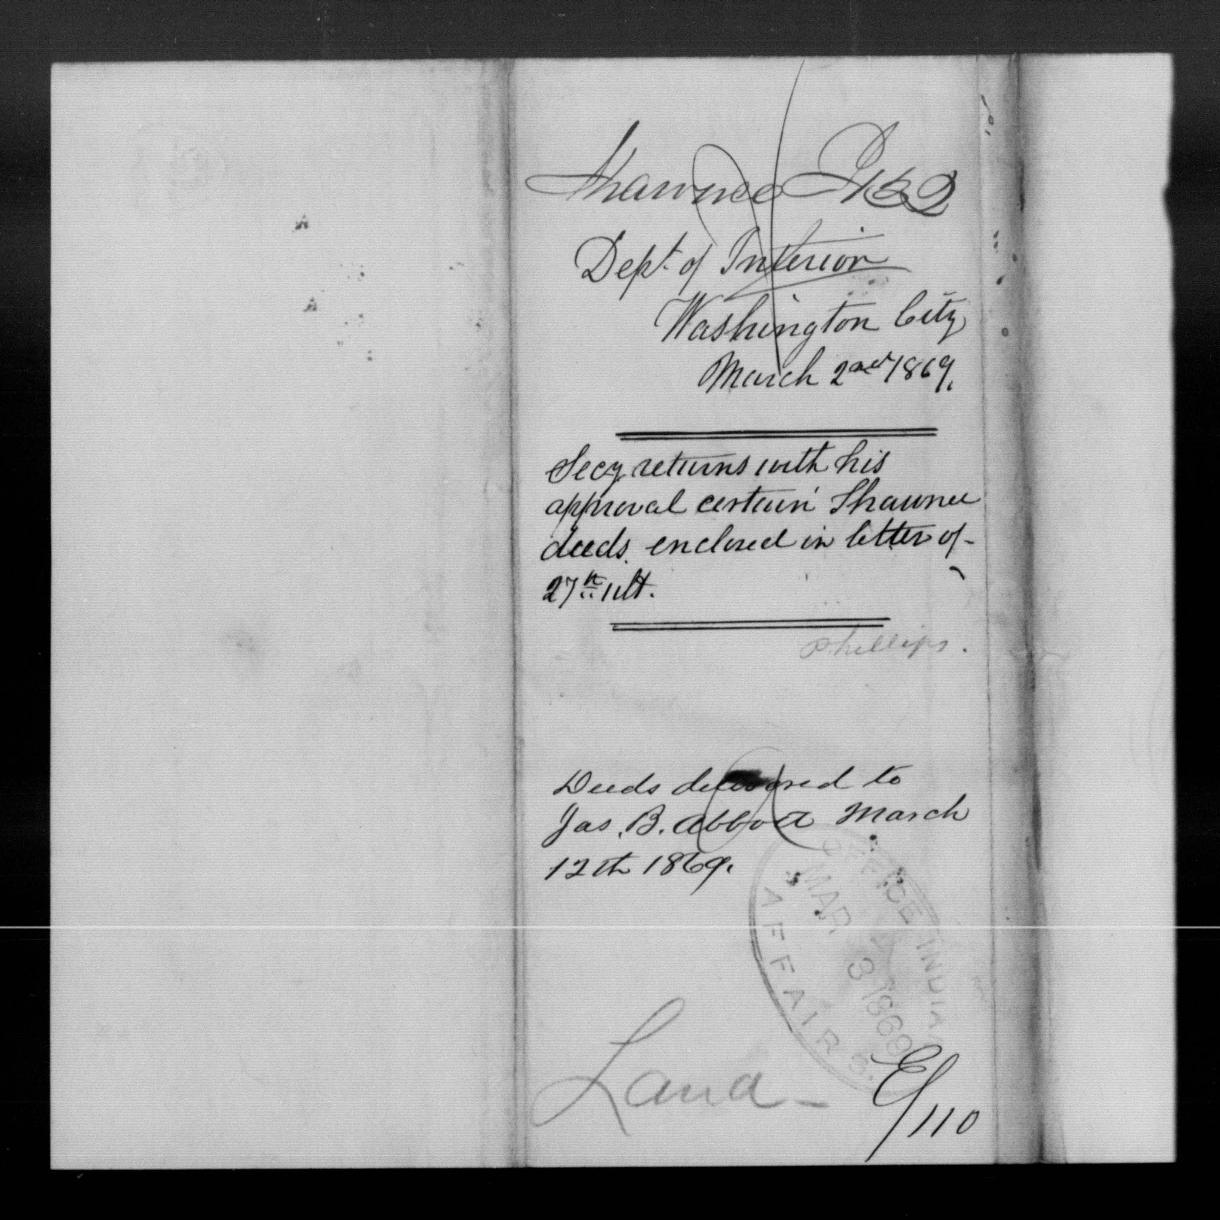 Shawnee I 152
Dept. of Interior
Washington City
March 2nd 1869.
Secy returns with his
approval certain Shawnee
deeds enclosed in letter of
27th ult.
Phillips.
Deeds delivered to
Jas. B. Abbott March
12th 1869.
OFFICE INDIAN AFFAIRS.
MAR 3 1869
Land
E/110